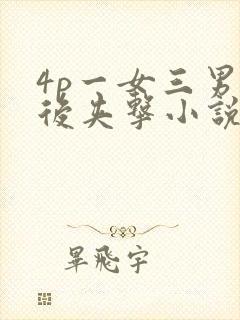 4p一女三男
後失擊小說
畢飛宇